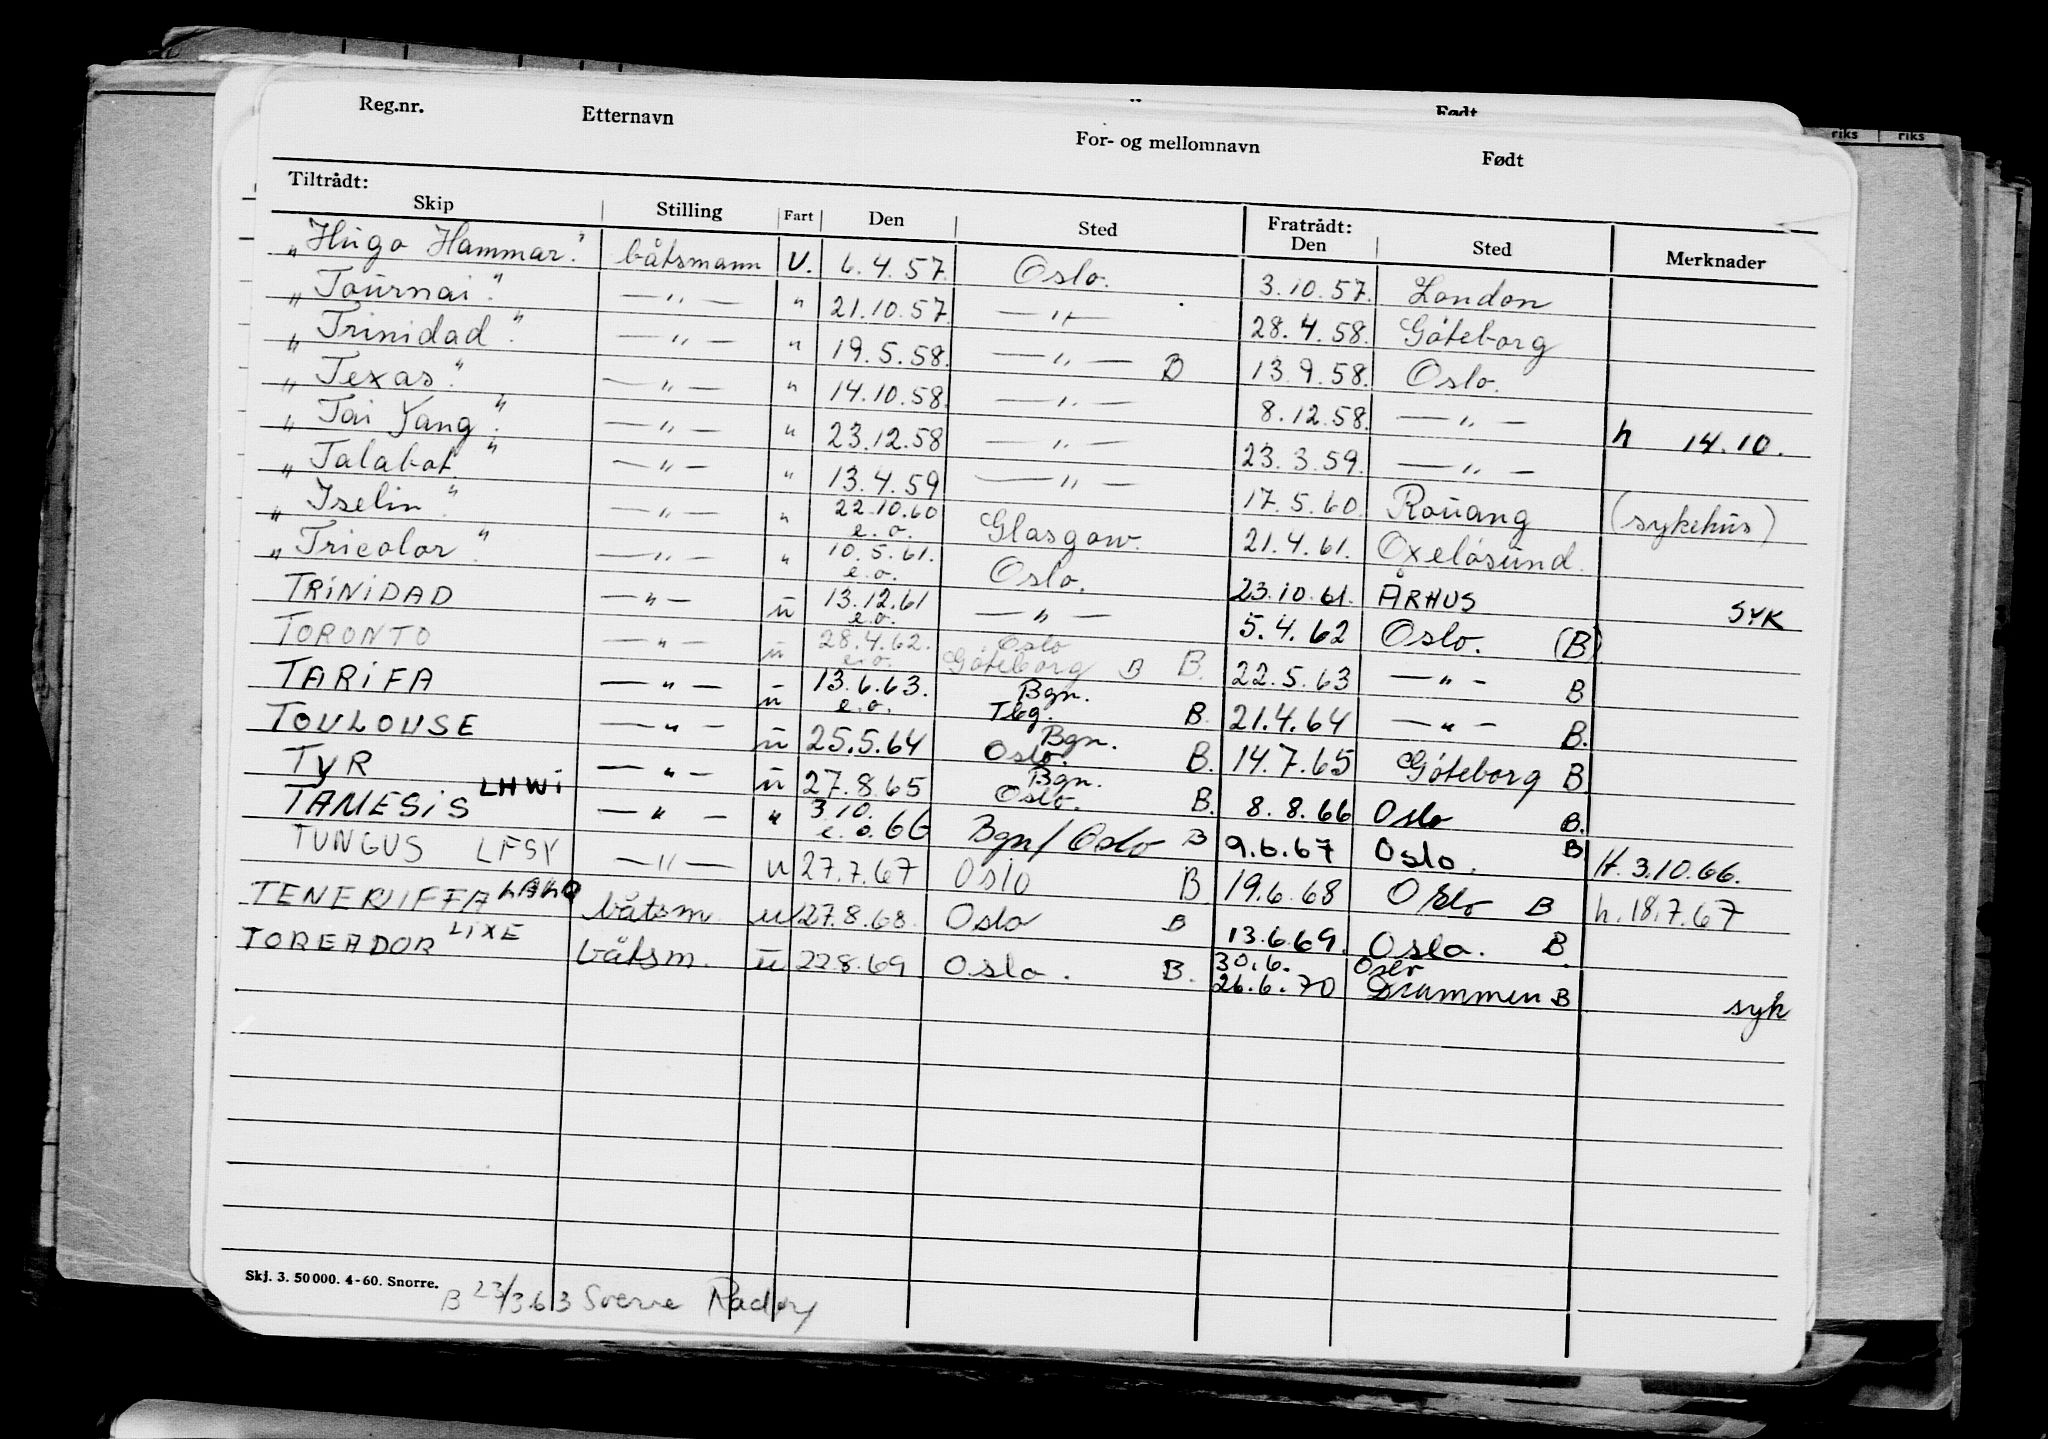 Født
riks riks
Reg.nr. Etternavn For- og mellomnavn Født
Tiltrådt: Fratrådt:
Skip Stilling Fart Den Sted Den Sted Merknader
„Hugo Hammar." båtsmann U. 6.4.57. Oslo. 3.10.57. London
„Tournai." — „ — " 21.10.57. — „ — 28.4.58. Göteborg
„Trinidad." — „ — " 19.5.58. — „ — B 13.9.58. Oslo.
„Texas." — „ — " 14.10.58. — „ — 8.12.58. — „ — h 14.10.
„Tai Yang." — „ — " 23.12.58 — „ — 23.3.59. — „ —
„Talabot" — „ — " 13.4.59 — „ — 17.5.60. Rouang (sykehus)
„Iselin." — „ — " 22.10.60 e.o. Glasgow. 21.4.61. Oxelösund.
„Tricolor." — „ — " 10.5.61. e.o. Oslo. 23.10.61. ÅRHUS SYK
TRINIDAD — „ — u 13.12.61 e.o. — „ — 5.4.62 Oslo. (B)
TORONTO — „ — u 28.4.62. e.o. Oslo Göteborg B B. 22.5.63 — „ — B
TARIFA — „ — u 13.6.63. e.o. Bgn. Tbg. B. 21.4.64 — „ — B.
TOULOUSE — „ — u 25.5.64 Bgn. Oslo. B. 14.7.65 Göteborg B.
TYR — „ — u 27.8.65 Bgn. Oslo. B. 8.8.66 Oslo B.
TAMESIS LHWI — „ — " 3.10. e.o. 66 Bgn/Oslo B 9.6.67 Oslo. B H. 3.10.66.
TUNGUS LFSY — „ — u 27.7.67 Oslo B 19.6.68 Oslo B h. 18.7.67
TENERIFFA båtsm. u 27.8.68. Oslo B 13.6.69. Oslo. B.
TOREADOR LIXE båtsm. u 22.8.69 Oslo. B. 30.6. Oslo
26.6.70 Drammen B syk
Skj. 3. 50 000. 4-60. Snorre.
B 23/3.63 Sverre Radøy